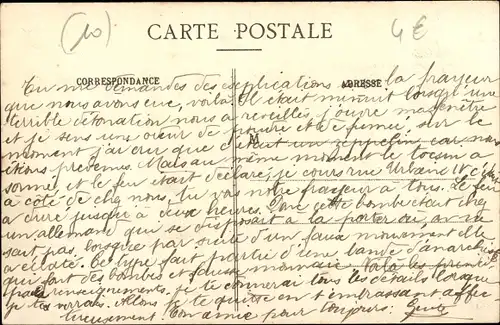 (10)
4€
CARTE POSTALE
CORRESPONDANCE
ADRESSE
Tu me demandes des explications sur la frayeur
que nous avons eue, voilà. Il était minuit lorsque une
terrible détonation nous a réveillés, j'ouvre ma fenêtre
et je sens une odeur de poudre et de fumée, sur le
moment j'ai cru que c'était un zeppelin, car nous
étions prévenus. Mais au même moment le tocsin a
sonné, et le feu était déclaré, je cours rue Urbain
à côté de chez nous, tu vois notre frayeur à tous. Le feu
a duré jusqu'à deux heures. Donc cette bombe était chez
un allemand qui se disposait à la porter où, on ne
sait pas, lorsque par suite d'un faux mouvement elle
a éclaté. Ce type fait partie d'une bande d'anarchistes
qui fait des bombes et fausse monnaie. Voilà les premiers
renseignements, je te donnerai tous les détails lorsque
je te verrai. Allons je te quitte en t'embrassant affec
tueusement. Ton amie pour toujours.